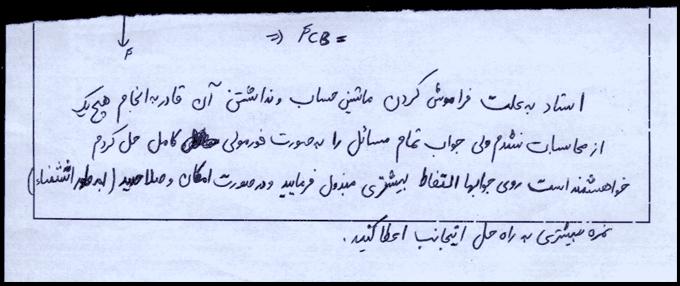 F
=> FCB =
استاد به علت فراموش کردن ماشین حساب و نداشتن آن قادر به انجام هیچ یک
از محاسبات نشدم ولی جواب تمام مسائل را به صورت فورمولی کامل حل کردم
خواهشمند است روی جوابها التفاط بیشتری مبذول فرمایید و در صورت امکان و صلاحدید (به طور استثناء)
نمره بیشتری به راه حل اینجانب اعطا کنید.